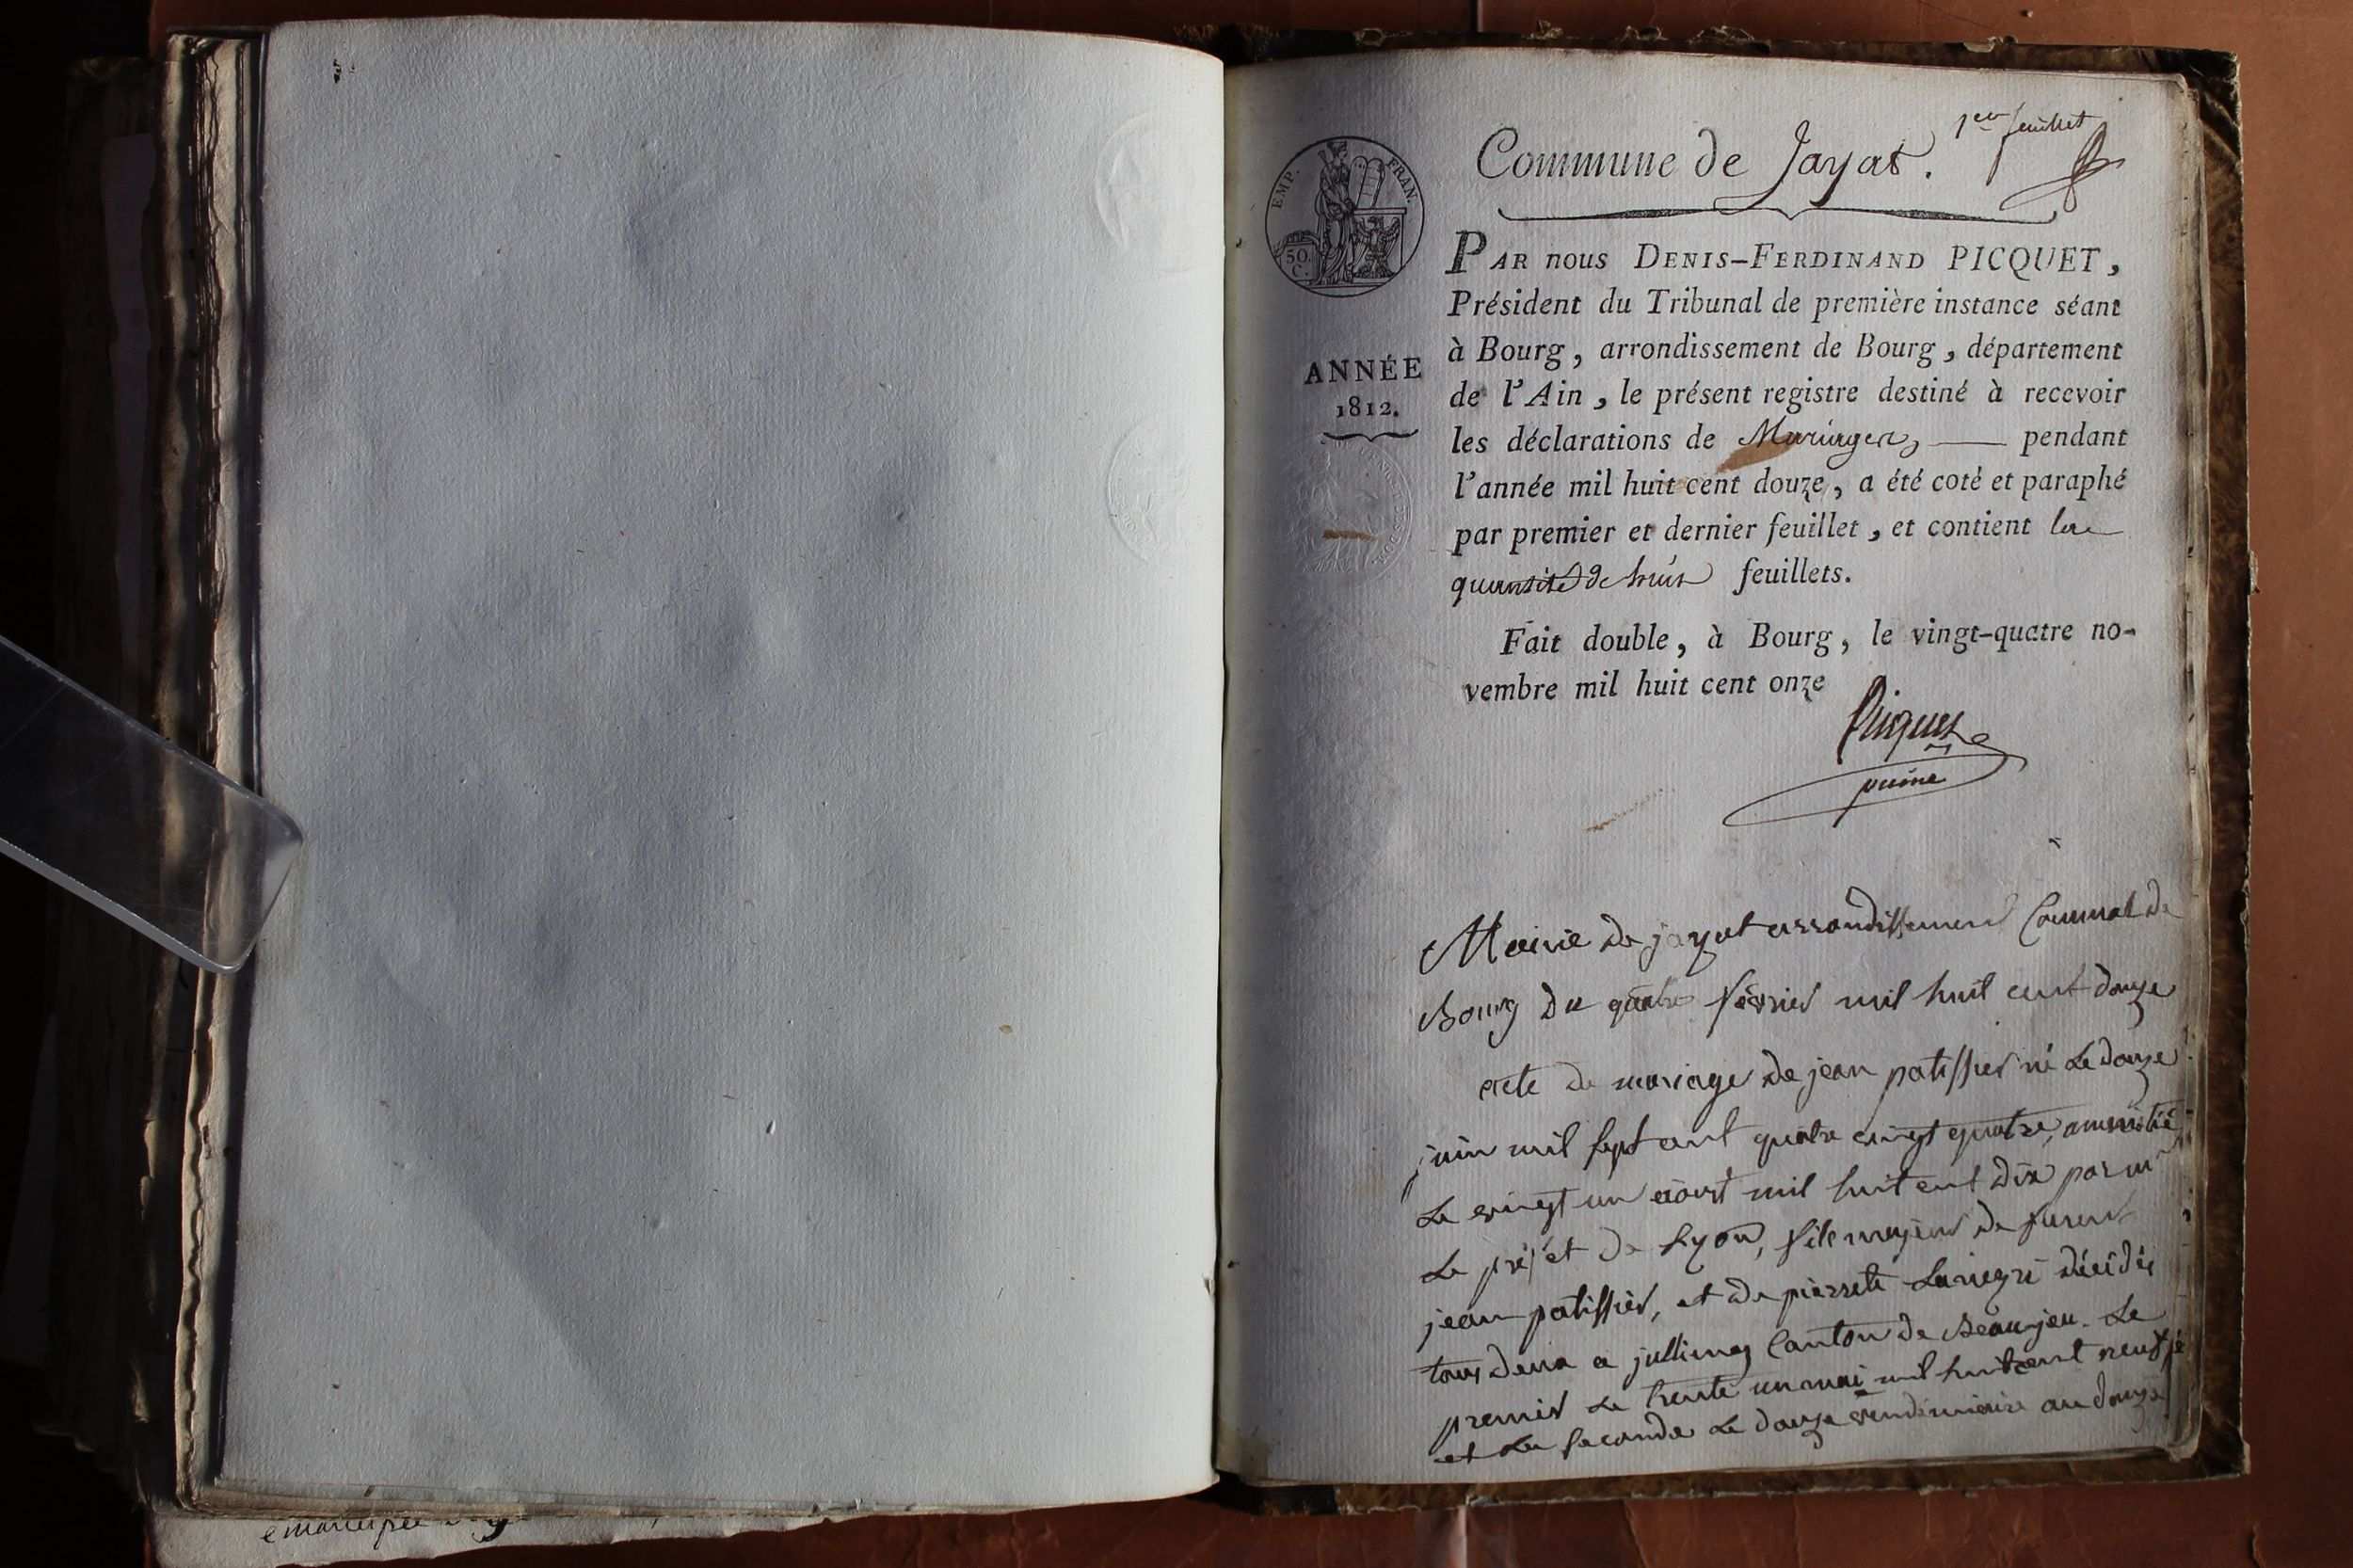 1er feuillet
Commune de Jayat.
EMP. FRAN.
50.
C.
ANNÉE
1812.
PAR nous DENIS-FERDINAND PICQUET,
Président du Tribunal de première instance séant
à Bourg, arrondissement de Bourg, département
de l'Ain, le présent registre destiné à recevoir
les déclarations de Mariages, — pendant
l'année mil huit cent douze, a été coté et paraphé
par premier et dernier feuillet, et contient la
quantité de huit feuillets.
Fait double, à Bourg, le vingt-quatre no-
vembre mil huit cent onze
Picquet
Mairie de jayat arrondissement Communal de
Bourg du quatre février mil huit cent douze
acte de mariage de jean patissier né le douze
juin mil sept cent quatre vingt quatre, amnistié
le vingt un aoust mil huit cent dix par mr
le préfet de Lyon, fils majeur de furent
jean patissier, et de pierrete décédés
tous deux a jullienas Canton de Beaujeu. Le
premier le trente un mai mil huit cent neuf
et la seconde le douze vendemiaire an douze
emancipée